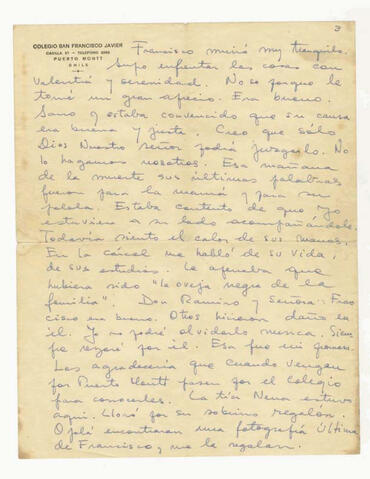 3
COLEGIO SAN FRANCISCO JAVIER
CASILLA 57 - TELEFONO
PUERTO MONTT
CHILE
Francisco murió muy tranquilo.
Supo enfrentar las cosas con
valentía y serenidad. No se porque le
tomé un gran afecto. Era bueno.
Sano y estaba convencido que su causa
era buena y justa. Creo que sólo
Dios Nuestro Señor podrá juzgarlo. No
lo hagamos nosotros. Esa mañana
de la muerte sus últimas palabras
fueron para la mamá y para su
polola. Estaba contento de que yo
estuviera a su lado acompañándole.
Todavía siento el calor de sus manos.
En la cárcel me habló de su vida,
de sus estudios. Le apenaba que
hubiera sido "la oveja negra de la
familia". Don Ramiro y Señora: Fran
cisco era bueno. Otros hicieron daño en
él. Yo no podré olvidarlo nunca. Siem
pre rezaré por él. Esa fue mi promesa.
Les agradecería que cuando vengan
por Puerto Montt pasen por el Colegio
para conocerles. La tía Nena estuvo
aquí. Lloró por su sobrino regalón.
Ojalá encontraran una fotografía última
de Francisco y me la regalan.